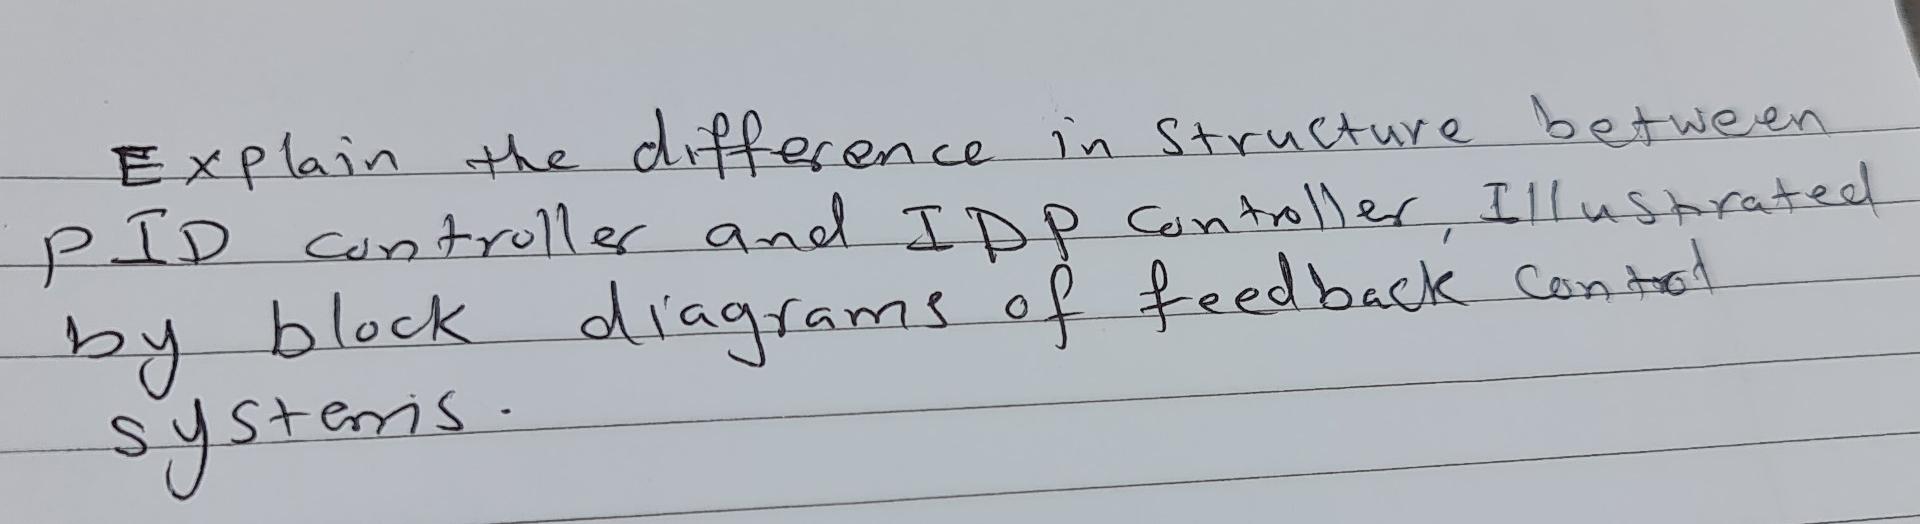 Explain the difference in structure between
PID controller and IDP controller, Illustrated
by block diagrams of feedback control
systems.